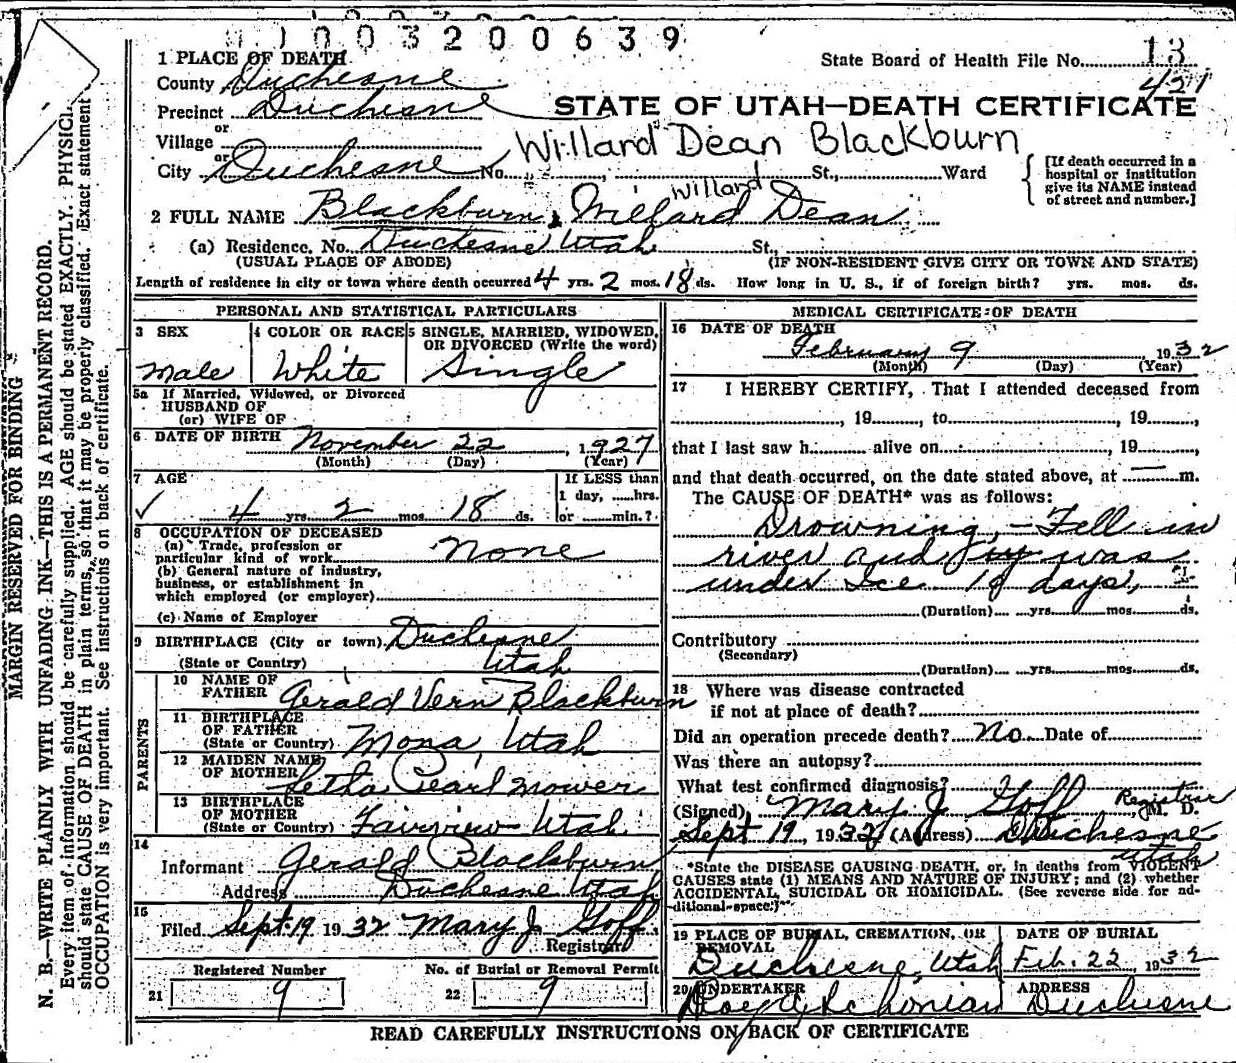 1003200639
1 PLACE OF DEATH
State Board of Health File No. 13
421
County Duchesne
Precinct Duchesne
STATE OF UTAH—DEATH CERTIFICATE
or
Village
Willard Dean Blackburn
or
City Duchesne No. , St., Ward
[If death occurred in a
hospital or institution
give its NAME instead
of street and number.]
Willard
2 FULL NAME Blackburn, Willard Dean
(a) Residence. No. Duchesne Utah St.,
(USUAL PLACE OF ABODE) (IF NON-RESIDENT GIVE CITY OR TOWN AND STATE)
Length of residence in city or town where death occurred 4 yrs. 2 mos. 18 ds. How long in U. S., if of foreign birth? yrs. mos. ds.
PERSONAL AND STATISTICAL PARTICULARS
3 SEX
Male
4 COLOR OR RACE
White
5 SINGLE, MARRIED, WIDOWED,
OR DIVORCED (Write the word)
Single
5a If Married, Widowed, or Divorced
HUSBAND OF
(or) WIFE OF
6 DATE OF BIRTH November 22, 1927
(Month) (Day) (Year)
7 AGE
If LESS than
1 day, ......hrs.
or ......min.?
✓ 4 yrs. 2 mos. 18 ds.
8 OCCUPATION OF DECEASED
(a) Trade, profession or
particular kind of work None
(b) General nature of industry,
business, or establishment in
which employed (or employer)
(c) Name of Employer
9 BIRTHPLACE (City or town) Duchesne
(State or Country) Utah
PARENTS
10 NAME OF
FATHER Gerald Vern Blackburn
11 BIRTHPLACE
OF FATHER
(State or Country) Mona, Utah
12 MAIDEN NAME
OF MOTHER Letha Pearl Mower
13 BIRTHPLACE
OF MOTHER
(State or Country) Fairview Utah
14
Informant Gerald Blackburn
Address Duchesne Utah
15
Filed Sept. 19 1932 Mary J. Goff
Registrar
Registered Number
21 9
No. of Burial or Removal Permit
22 9
MEDICAL CERTIFICATE OF DEATH
16 DATE OF DEATH
February 9 1932
(Month) (Day) (Year)
17 I HEREBY CERTIFY, That I attended deceased from
, 19 , to , 19 ,
that I last saw h alive on , 19 ,
and that death occurred, on the date stated above, at — m.
The CAUSE OF DEATH* was as follows:
Drowning, - Fell in
river and was
under Ice days,
(Duration) yrs. mos. ds.
Contributory
(Secondary)
(Duration) yrs. mos. ds.
18 Where was disease contracted
if not at place of death?
Did an operation precede death? No. Date of
Was there an autopsy?
What test confirmed diagnosis?
(Signed) Mary J Goff Registrar M. D.
Sept 19, 1932 (Address) Duchesne
Utah
*State the DISEASE CAUSING DEATH, or, in deaths from VIOLENT
CAUSES state (1) MEANS AND NATURE OF INJURY; and (2) whether
ACCIDENTAL, SUICIDAL OR HOMICIDAL. (See reverse side for ad-
ditional space.)
19 PLACE OF BURIAL, CREMATION, OR
REMOVAL
Duchesne, Utah
DATE OF BURIAL
Feb. 22, 1932
20 UNDERTAKER
ADDRESS
Duchesne
READ CAREFULLY INSTRUCTIONS ON BACK OF CERTIFICATE
MARGIN RESERVED FOR BINDING
N. B.—WRITE PLAINLY WITH UNFADING INK—THIS IS A PERMANENT RECORD.
Every item of information should be carefully supplied. AGE should be stated EXACTLY. PHYSICI
should state CAUSE OF DEATH in plain terms, so that it may be properly classified. Exact statement
OCCUPATION is very important. See instructions on back of certificate.